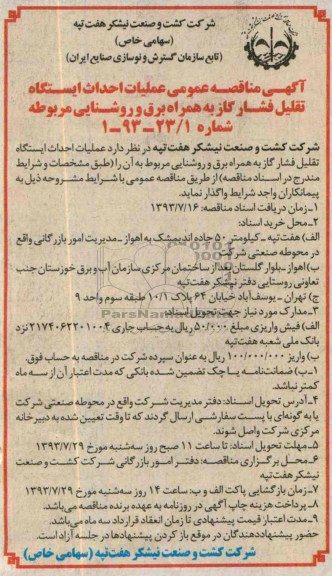 شرکت کشت و صنعت نیشکر هفت تپه
(سهامی خاص)
(تابع سازمان گسترش و نوسازی صنایع ایران)
آگهی مناقصه عمومی عملیات احداث ایستگاه
تقلیل فشار گاز به همراه برق و روشنایی مربوطه
شماره ۲۳/۱-۹۳-۱
شرکت کشت و صنعت نیشکر هفت تپه در نظر دارد عملیات احداث ایستگاه
تقلیل فشار گاز به همراه برق و روشنایی مربوط به آن را (طبق مشخصات و شرایط
مندرج در اسناد مناقصه) از طریق مناقصه عمومی با شرایط مشروحه ذیل به
پیمانکاران واجد شرایط واگذار نماید.
۱-زمان دریافت اسناد مناقصه: ۱۳۹۳/۷/۱۶
۲-محل خرید اسناد:
الف) هفت تپه - کیلومتر ۵۰ جاده اندیمشک به اهواز - مدیریت امور بازرگانی واقع
در محوطه صنعتی شرکت
ب) اهواز-بلوار گلستان بعد از ساختمان مرکزی سازمان آب و برق خوزستان جنب
تعاونی روستایی دفتر نیشکر هفت تپه
ج) تهران - یوسف آباد خیابان ۶۴ پلاک ۱۰/۱ طبقه سوم واحد ۹
۳-مدارک مورد نیاز جهت تحویل اسناد:
الف) فیش واریزی مبلغ ۵۰۰/۰۰۰ ریال به حساب جاری ۲۱۷۴۰۶۲۲۰۱۰۰۴ نزد
بانک ملی شعبه هفت تپه
ب) واریز ۱۰۰/۰۰۰/۰۰۰ ریال به عنوان سپرده شرکت در مناقصه به حساب فوق.
۱-ب) ضمانت نامه یا چک تضمین شده بانکی که مدت اعتبار آن از سه ماه
کمتر نباشد.
۴-آدرس تحویل اسناد: دفتر مدیریت شرکت واقع در محوطه صنعتی شرکت
یا به گونه ای با پست سفارشی ارسال گردند که تا وقت تعیین شده به دبیرخانه
مرکزی شرکت واصل شوند.
۵-مهلت تحویل اسناد: تا ساعت ۱۱ صبح روز سه شنبه مورخ ۱۳۹۳/۷/۲۹
۶-محل برگزاری مناقصه: دفتر امور بازرگانی شرکت کشت و صنعت
نیشکر هفت تپه
۷-زمان بازگشایی پاکت الف و ب: ساعت ۱۴ روز سه شنبه مورخ ۱۳۹۳/۷/۲۹
۸-پرداخت هزینه چاپ آگهی در روزنامه به عهده برنده مناقصه می باشد.
۹-مدت اعتبار قیمت پیشنهادی تا زمان انعقاد قرارداد سه ماه می باشد.
حضور پیشنهاددهندگان در موقع باز کردن پیشنهادها در جلسه آزاد است.
شرکت کشت و صنعت نیشکر هفت تپه (سهامی خاص)